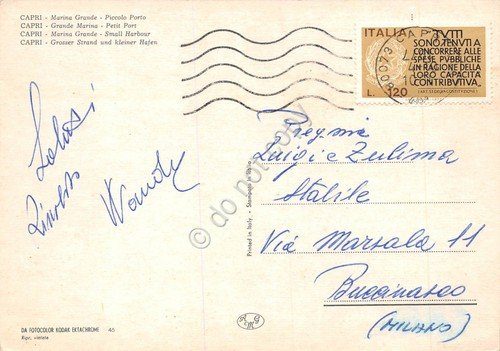 CAPRI - Marina Grande - Piccolo Porto
CAPRI - Grande Marina - Petit Port
CAPRI - Marina Grande - Small Harbour
CAPRI - Grosser Strand und kleiner Hafen
ITALIA
TUTTI
SONO TENUTI A
CONCORRERE ALLE
SPESE PUBBLICHE
IN RAGIONE DELLA
LORO CAPACITÀ
CONTRIBUTIVA
L. 120
Saluti
Wanda
Pregmi
Luigi e Zulima
Stabile
Via Marsala 11
Buccinasco
(MILANO)
Printed in Italy - Stampato in Italia
do not copy
DA FOTOCOLOR KODAK EKTACHROME 45
Ripr. vietata